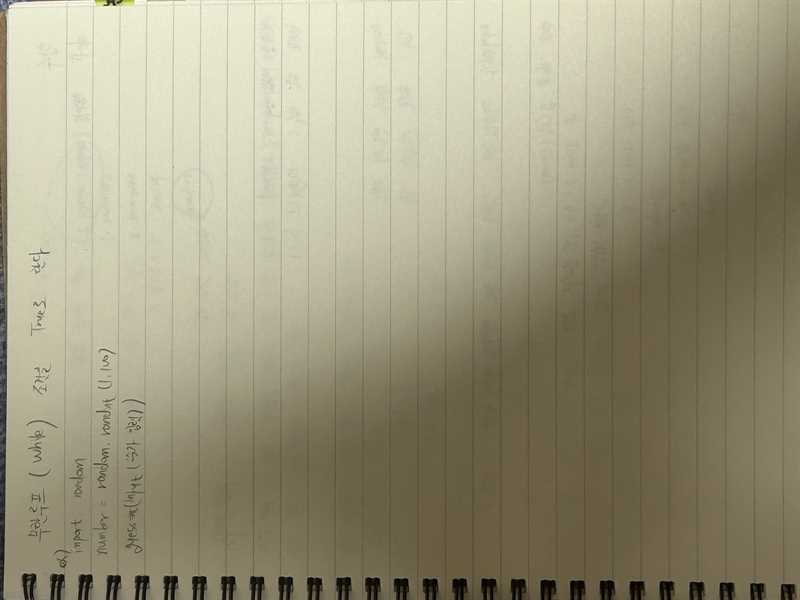 무한루프 (While) 조건을 True로 한다
ex)
import random
number = random.randint(1,100)
guess = int(input(숫자 입력))